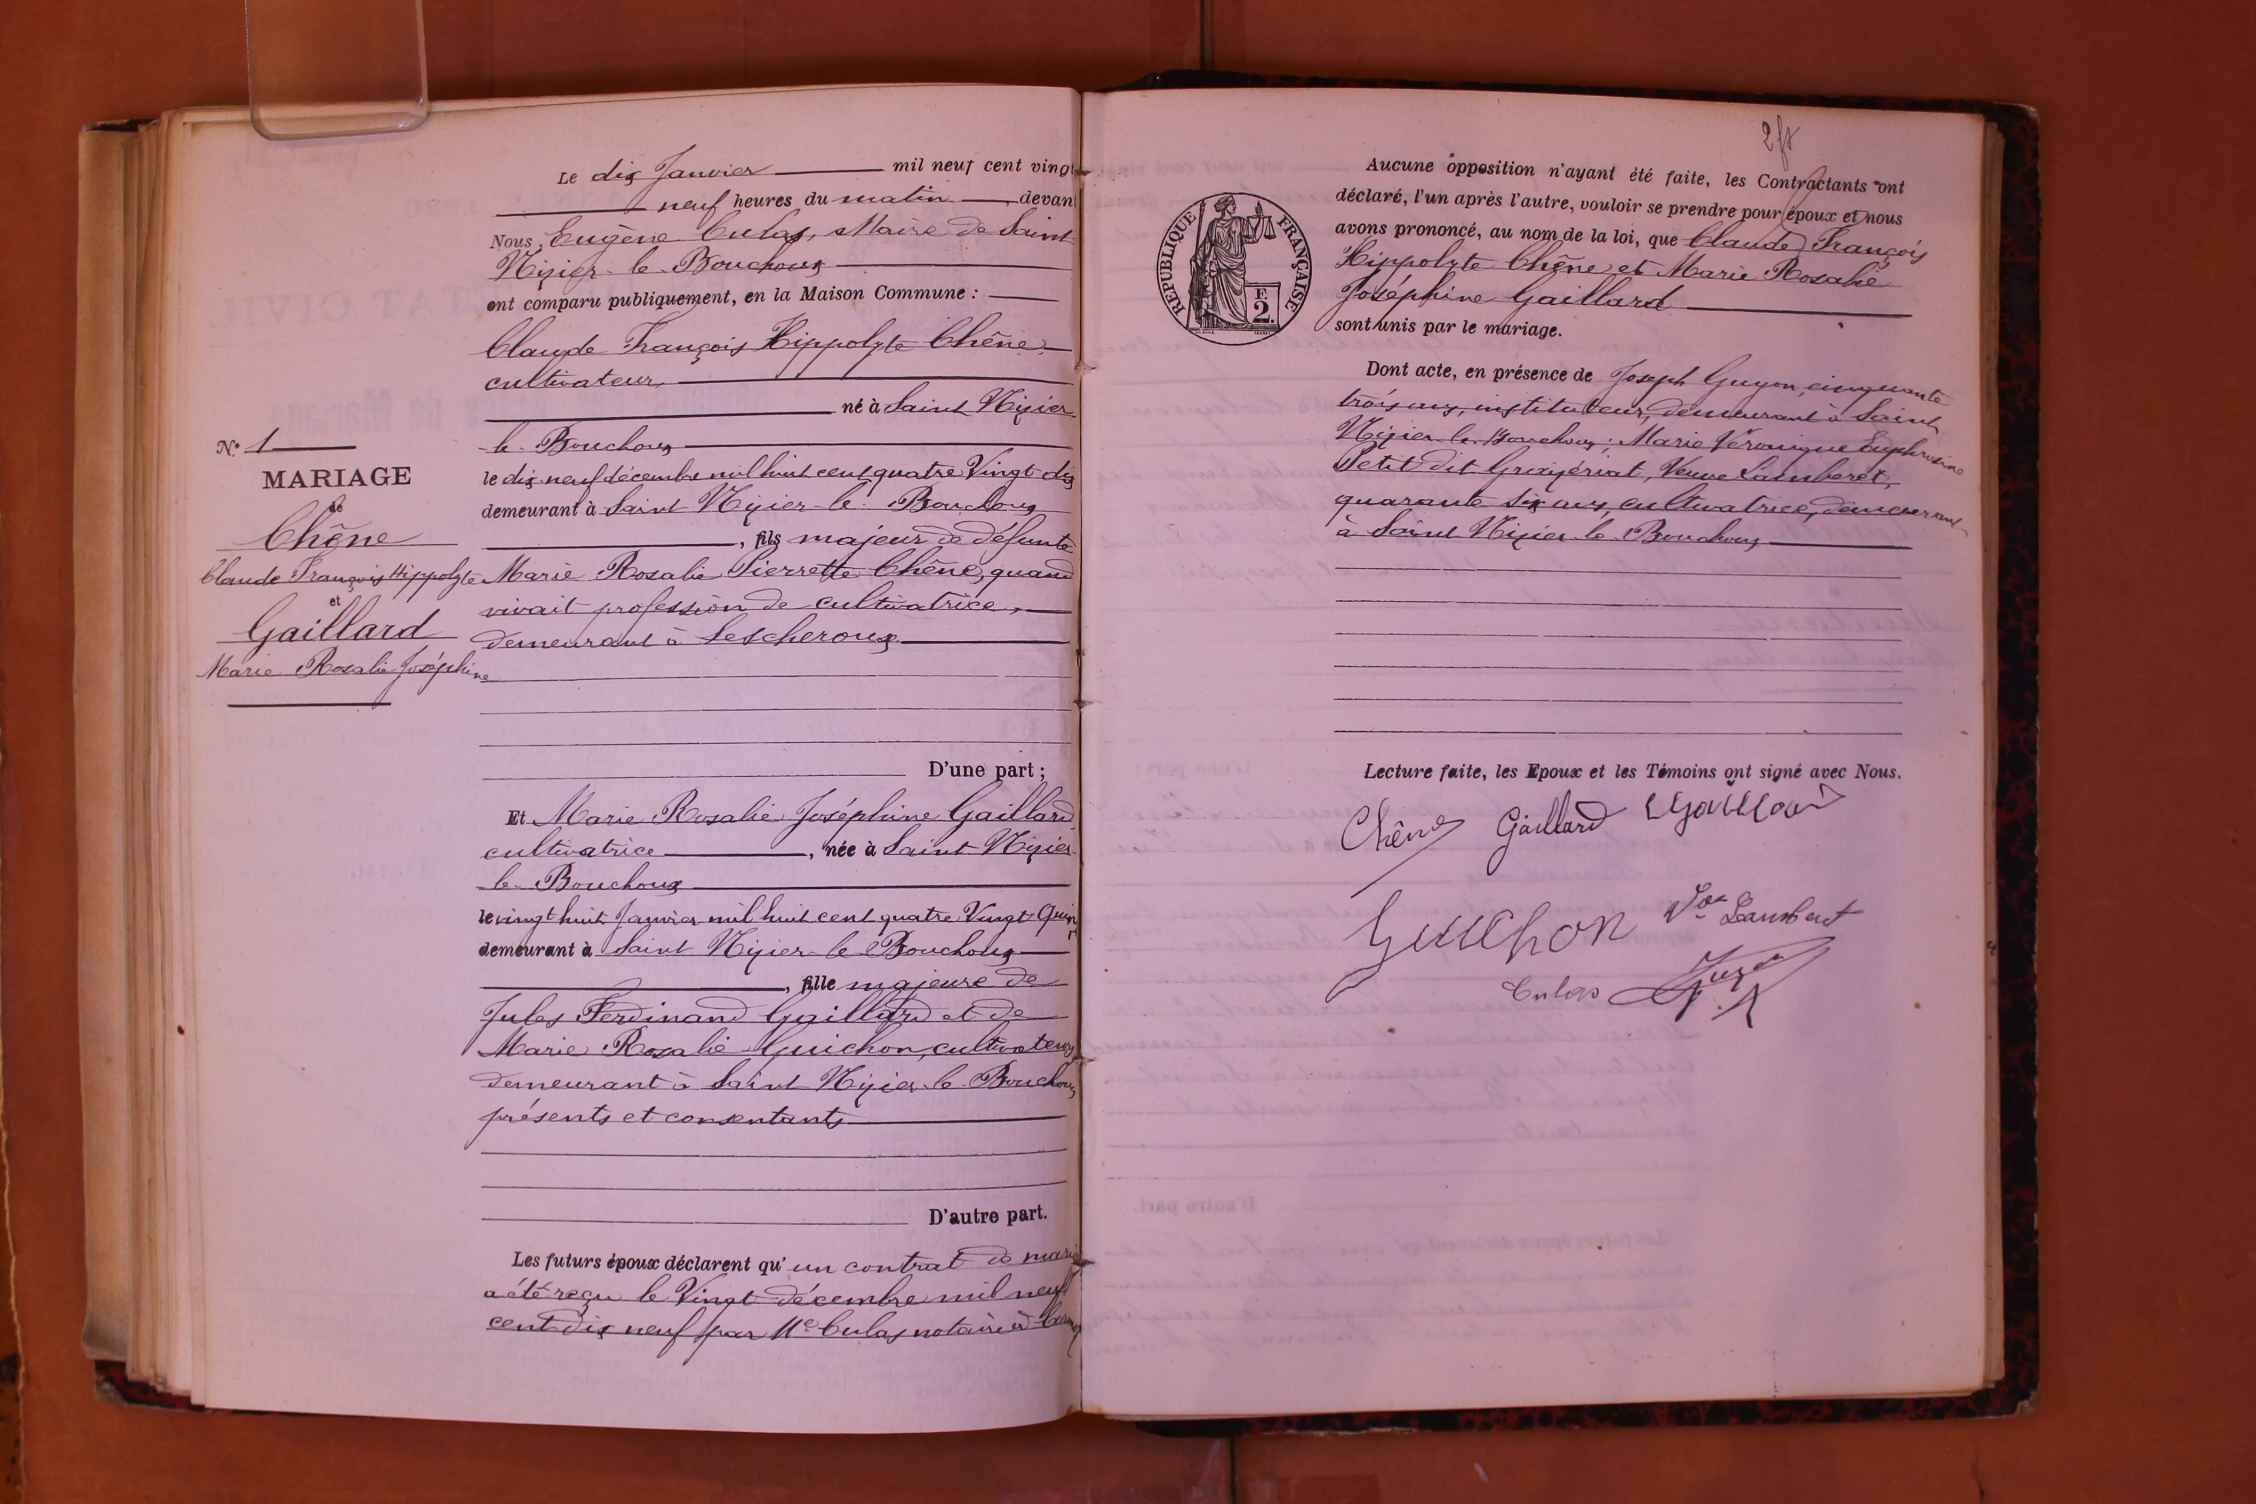 Le dix Janvier mil neuf cent vingt
neuf heures du matin, devan
Nous, Eugène Culas, Maire de Saint
Nizier-le-Bouchoux
ont comparu publiquement, en la Maison Commune :
Claude François Hippolyte Chêne,
cultivateur,
né à Saint Nizier
le Bouchoux
le dix neuf décembre mil huit cent quatre Vingt dix
demeurant à Saint Nizier-le-Bouchoux
, fils majeur de défunte
Marie Rosalie Pierrette Chêne, quand
vivait profession de cultivatrice,
demeurant à Lescheroux
D'une part ;
Et Marie Rosalie Joséphine Gaillard,
cultivatrice, née à Saint-Nizier
le Bouchoux
le vingt huit Janvier mil huit cent quatre Vingt Quin
demeurant à Saint Nizier-le-Bouchoux
, fille majeure de
Jules Ferdinand Gaillard et de
Marie Rosalie Guichon, cultivateurs
demeurant à Saint Nizier-le-Bouchoux
présents et consentants
D'autre part.
Les futurs époux déclarent qu'un contrat de mari
a été reçu le Vingt décembre mil neuf
cent dix neuf par Me Culas notaire à
N° 1
MARIAGE
de
Chêne
Claude François Hippolyte
et
Gaillard
Marie Rosalie Joséphine
Aucune opposition n'ayant été faite, les Contractants ont
déclaré, l'un après l'autre, vouloir se prendre pour époux et nous
avons prononcé, au nom de la loi, que Claude François
Hippolyte Chêne et Marie Rosalie
Joséphine Gaillard
sont unis par le mariage.
RÉPUBLIQUE FRANÇAISE
F.
2.
Dont acte, en présence de Joseph Guyon, cinquante
trois ans, instituteur, demeurant à Saint
Nizier-le-Bouchoux ; Marie Véronique Euphrosine
Petit dit Grézériat, Veuve Lamberet,
quarante six ans, cultivatrice, demeurant
à Saint Nizier-le-Bouchoux
Lecture faite, les Epoux et les Témoins ont signé avec Nous.
Chêne Gaillard Gaillard
Guichon Vve Lambert
Culas Guyon